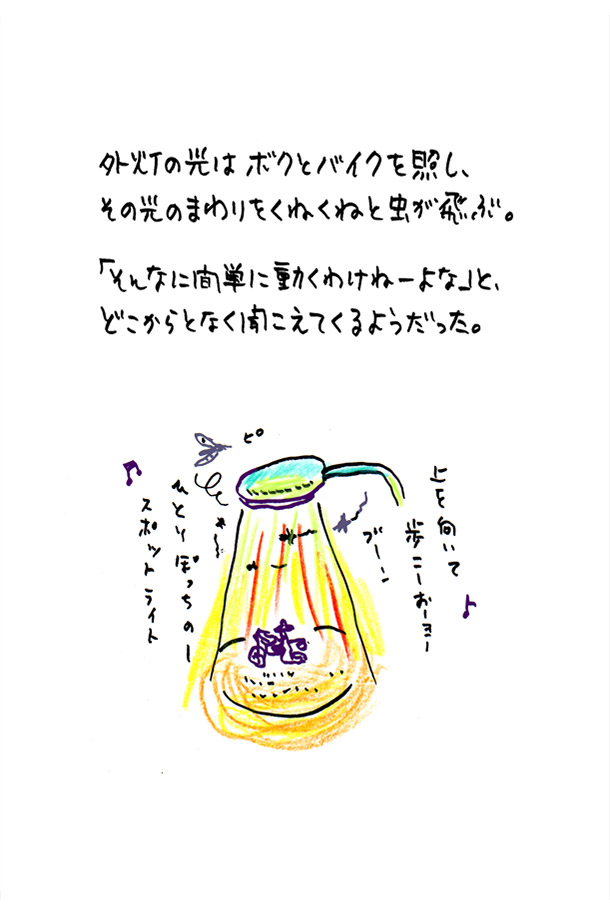 外灯の光は ボクとバイクを照し、
その光のまわりをくねくねと虫が飛ぶ。
「そんなに簡単に動くわけねーよな」と、
どこからとなく聞こえてくるようだった。
ピ
上を向いて
歩こーおーヨー
ブーン
ひとりぼっちのー
スポットライト